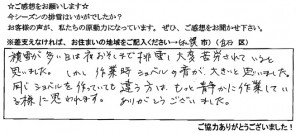 ☆ご感想をお願いします☆
今シーズンの排雪はいかがでしたか?
お客様の声が、私たちの原動力になっています。ぜひ、ご感想をお聞かせ下さい。
※差支えなければ、お住まいの地域をご記入ください→( 市)( 区)
積雪が多い日は夜おそくまで排雪、大変苦労されていると
思いました。しかし作業時ショベルの音が、大きいと思いました。
同じショベルを作っていても違う方は、もっと静かに作業してい
る様に思われます。 ありがとうございました。
ご協力ありがとうございました!